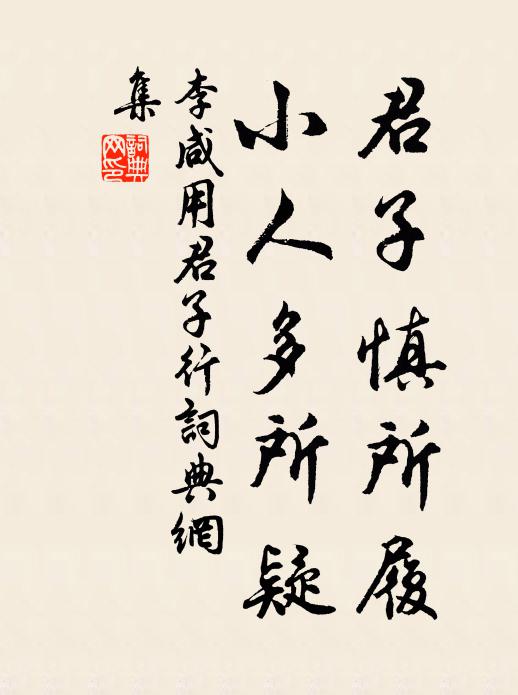 君子慎所履
小人多所疑
李咸用君子行詞典網
集
詞典
网印